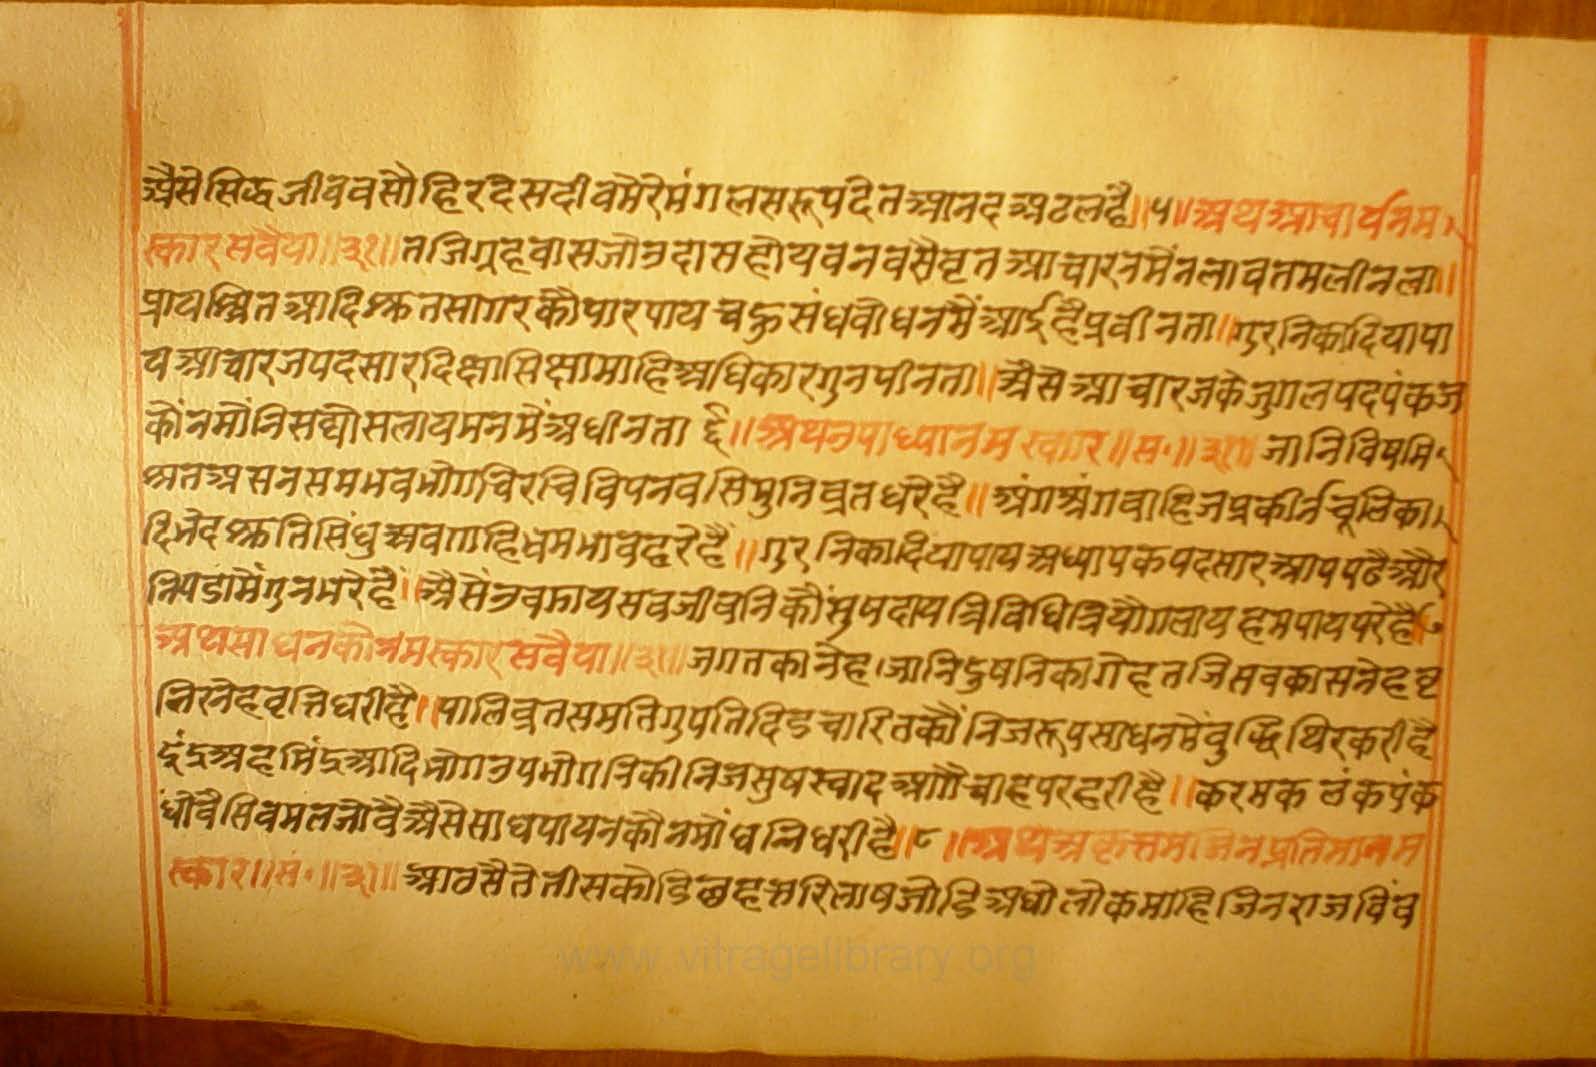 अैसे सिद्ध जीव वसौ हिरदै सदीव मेरे मंगल सरूप देत आनंद अटल है॥५॥अथ आचार्य नम
स्कार सवैया॥३१॥तजि गृहवास जो उदास होय वन वसै वृत आचारन मैं न लावत मलीनता॥
प्रायश्चित आदि श्रुतसागर कौ पार पाय चक्र संघ वोधन मैं आई है प्रवीनता॥गुरनि का दिया पा
य आचारज पद सार दिक्षा सिक्षा माहि अधिकार गुन पीनता॥अैसे आचारज के जुगल पद पंकज
कौं नमौं निस द्यौस लाय मन मैं अधीनता ६॥अथ उपाध्या नमस्कार॥स॰॥३१॥जानि विष मि
श्रत असन सम भव भोग चिर चि विपन वसि मुनिव्रत धरे है॥अंग अंगवाहिज प्रकीर्न चूलिका
दि भेद श्रुति सिंधु अवगाहि धर्म भाव ढरे हैं॥गुरनि का दिया पाय अध्यापक पद सार आप पढै और
नि पडामैं गुन भरे हैं॥अैसे उवझाय सव जीवनि कौं सुषदाय त्रिविधि त्रियौग लाय हम पाय परे हैं७
अथ साधन कौ नमस्कार सवैया॥३१॥जगत का नेह जानि दुषनि का गेह तजि सव का सनेह
निरनेह वृत्ति धरी है॥पालि व्रत समति गुपति दिड चारित कौं निज रूप साधन मैं वुद्धि थिर करी है
इंद्र अहमिंद्र आदि भोग उपभोगनि की निज सुष स्वाद आगै चाह परहरी है॥करम कलंक पंक
धोवै सिव मल जोवै अैसे साध पायन कौ नमौं धलि धरी है॥८॥अथ अकृत्तम जिन प्रतिमा नम
स्कार॥स॰॥३१॥आठ सै तेतीस कोडि छहत्तरि लाष जोडि अधोलोक माहि जिनराज विंव
www.vitragelibrary.org